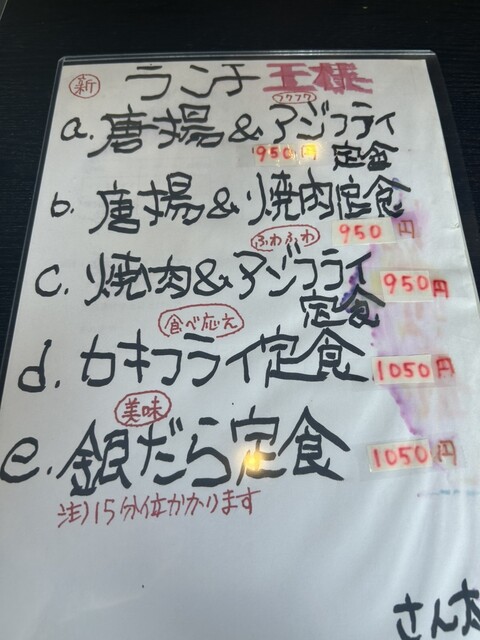 新 ランチ 王様
フワフワ
a. 唐揚&アジフライ
950円 定食
b. 唐揚&焼肉定食
950円
ふわふわ
c. 焼肉&アジフライ
定食 950円
食べ応え
d. カキフライ定食 1050円
美味
e. 銀だら定食 1050円
注)15分位かかります
さん太